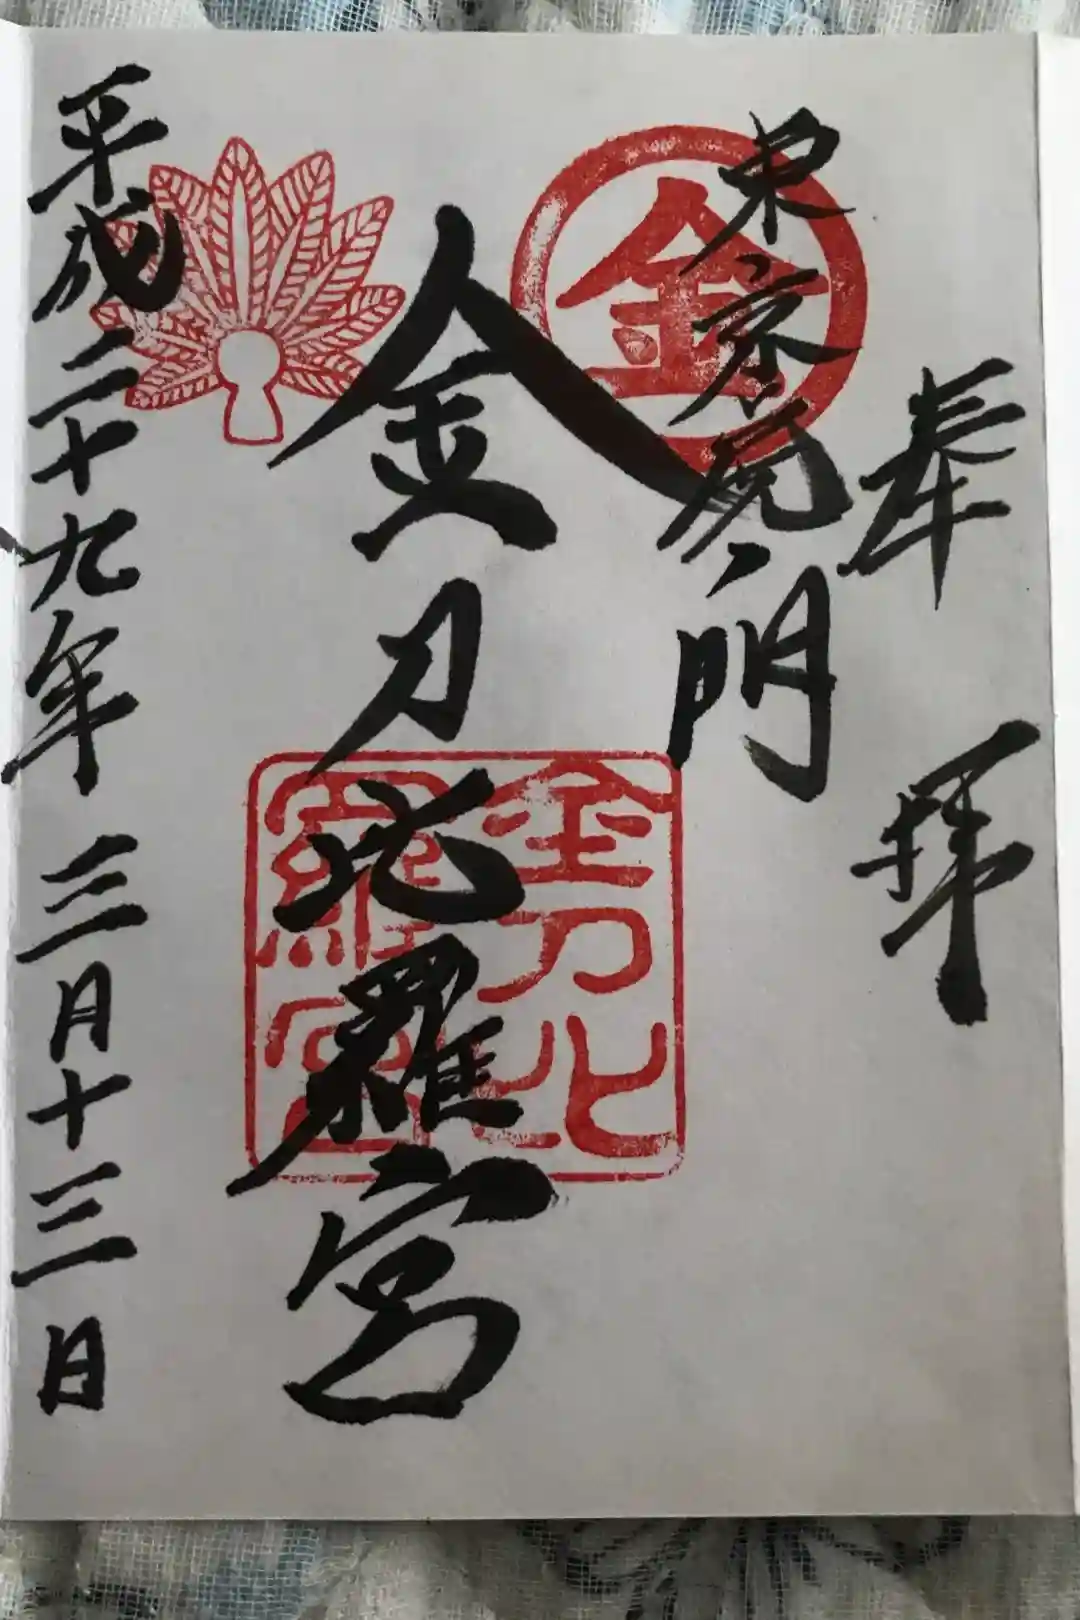 奉拝
東京虎ノ門
金
金刀比羅宮
金刀比
羅宮
平成二十九年三月十三日